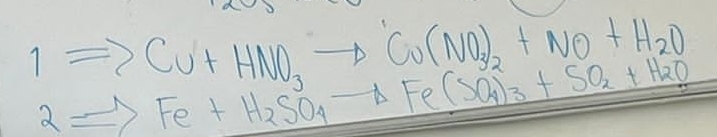 1 ⇒ Cu + HNO₃ → Cu(NO₃)₂ + NO + H₂O
2 ⇒ Fe + H₂SO₄ → Fe(SO₄)₃ + SO₂ + H₂O